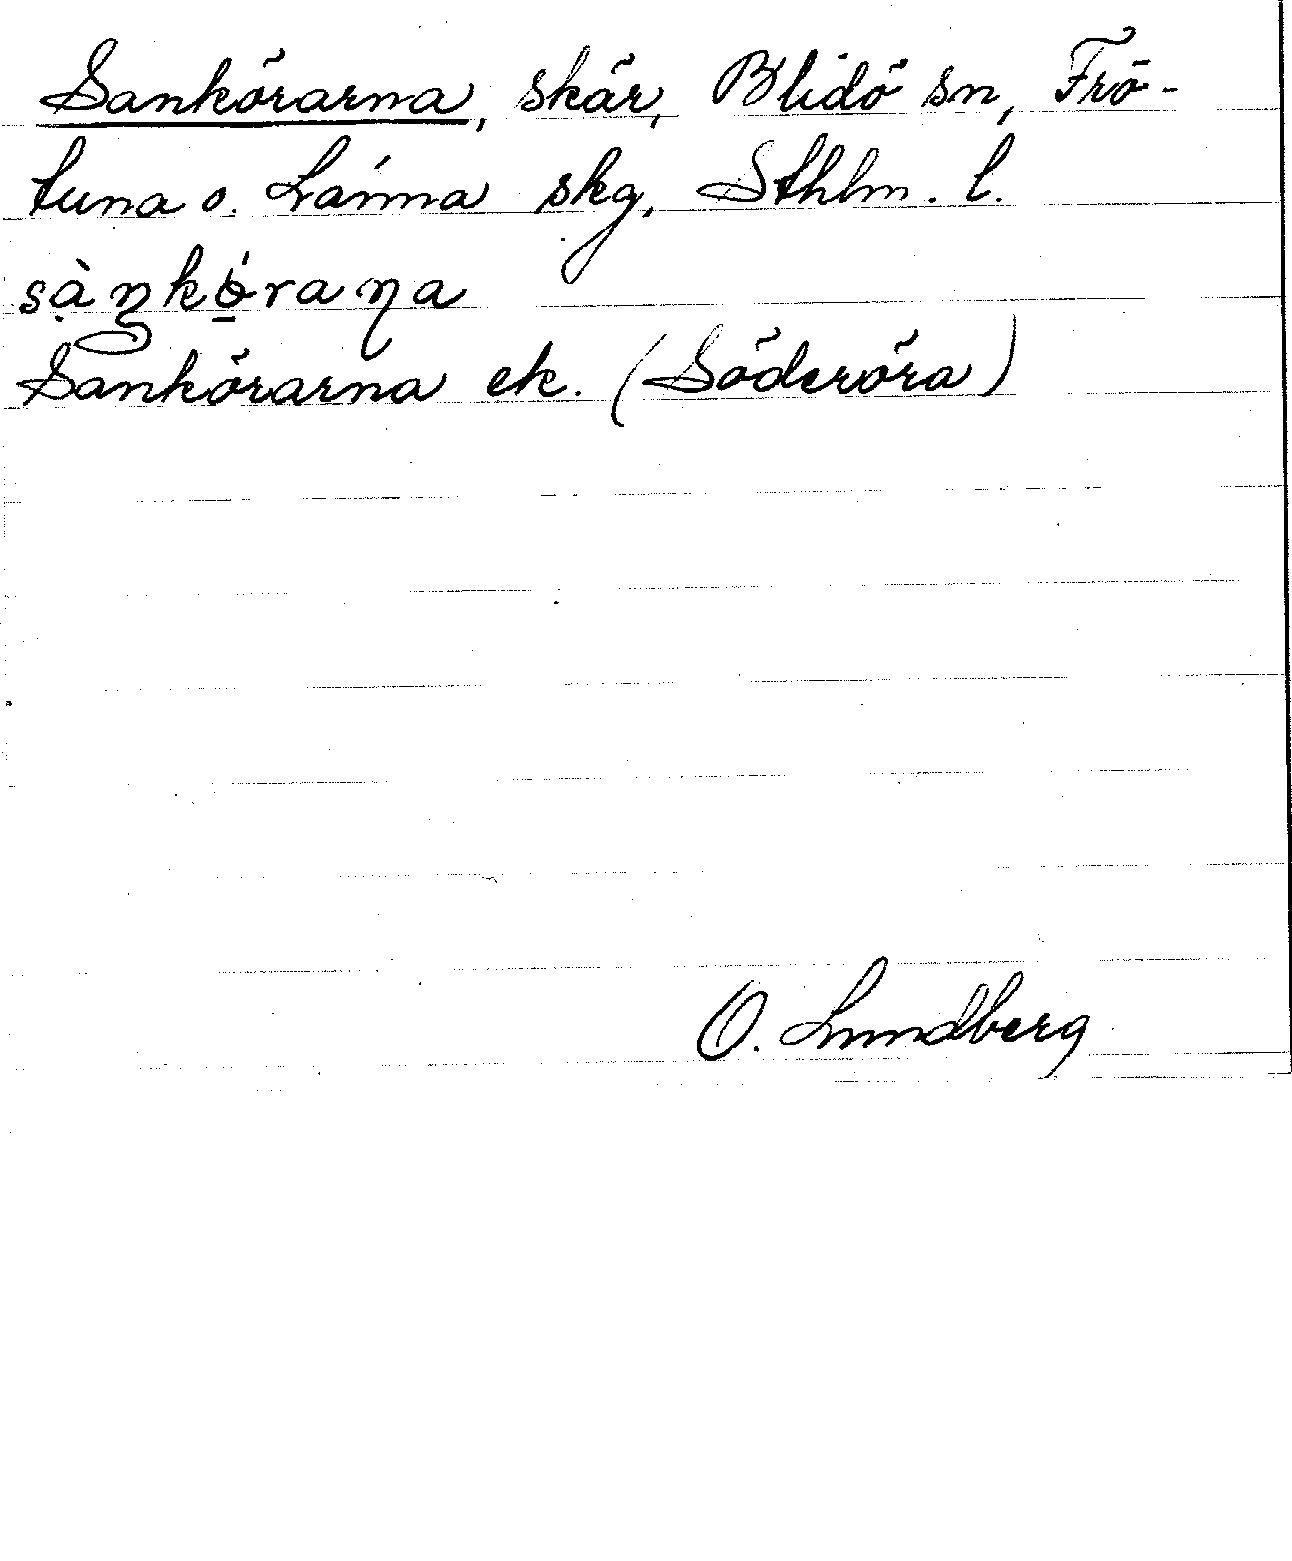 Sankörarna, skär, Blidö sn, Frö-
tuna o. Länna skg, Sthlm. l.
sàŋkö́raṇa
Sankörarna ek. (Söderöra)
O. Lundberg